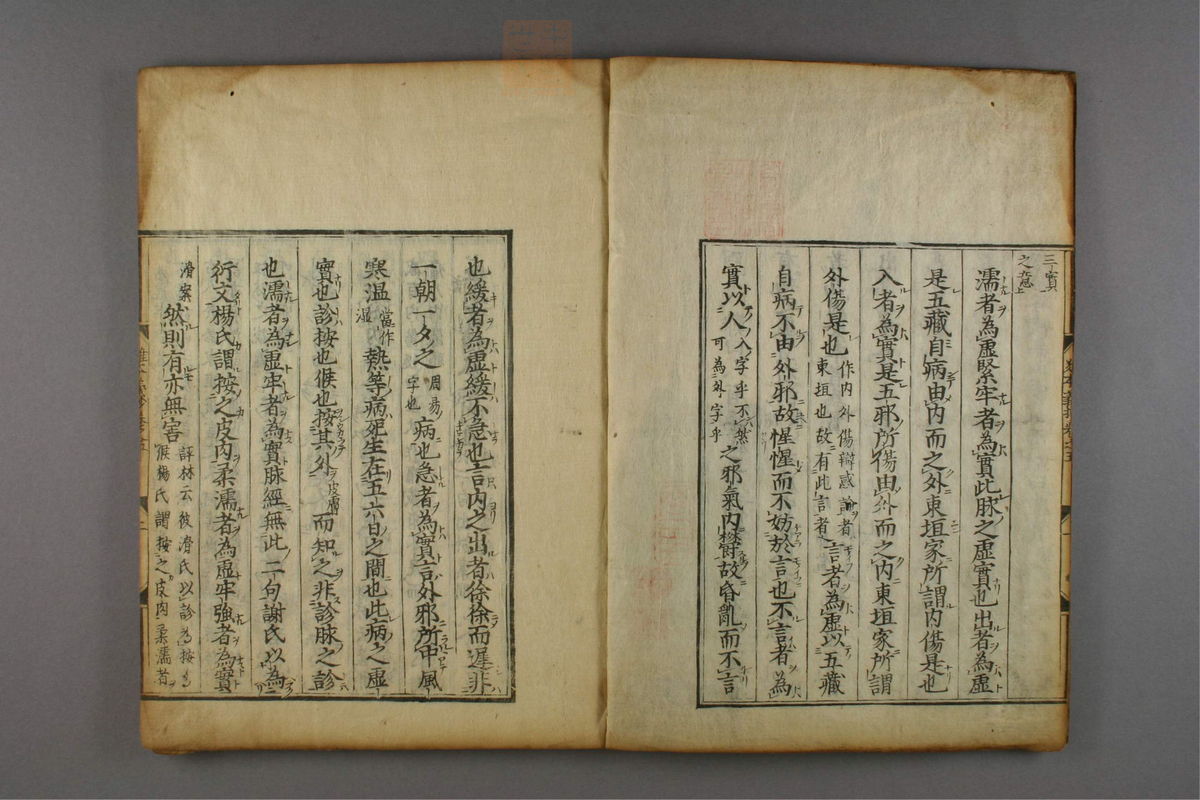 三實
濡者為虛緊牢者為實此脉之虛實也出者為虛
是五藏自病由内而之外東垣家所謂内傷是也
入者為實是五邪所傷由外而之内東垣家所謂
外傷是也作内外傷辯惑論者東垣也故有此言者言者為虛以五藏
自病不由外邪故惺惺而不妨於言也不言者為
實以人入字乎不然可為外字乎之邪氣内欝故昏亂而不言
也緩者為虛緩不急也言内之出者徐徐而遲非
一朝一夕之周易字也病也急者為實言外邪所中風
寒温當作濕熱等病死生在五六日之間也此病之虛
實也診按也候也按其外皮膚而知之非診脉之診
也濡者為虛牢者為實脉經無此二句謝氏以為
衍文楊氏謂按之皮肉柔濡者為虛牢強者為實
滑案然則有亦無害評林云彼滑氏以診為按為候楊氏謂按之皮肉柔濡者